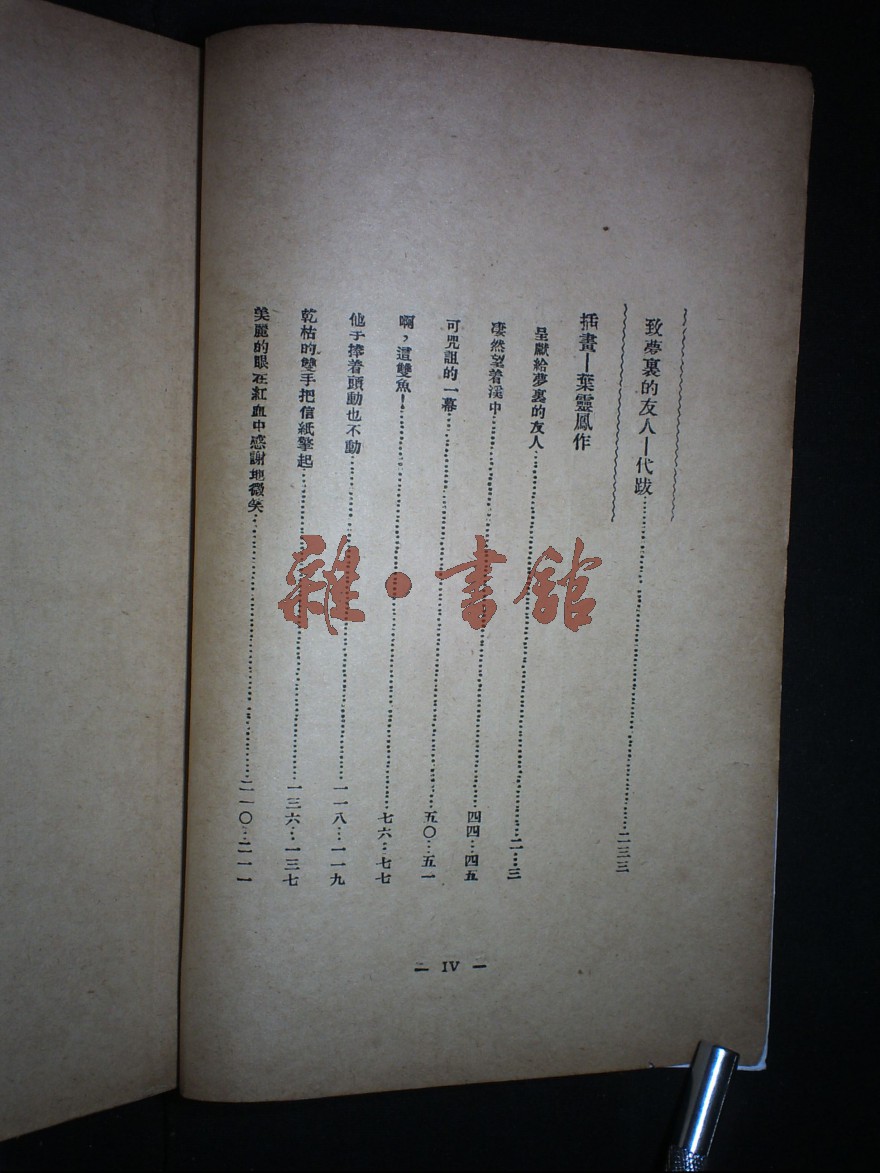 致夢裏的友人—代跋……二三三
插畫—葉靈鳳作
呈獻給夢裏的友人……二…三
凄然望着滬中……四四…四五
可咒詛的一幕……五〇…五一
啊，這雙魚！……七六…七七
他手捧着頭動也不動……一一八…一一九
乾枯的雙手把信紙擎起……一三六…一三七
美麗的眼在紅血中感謝地微笑……二一〇…二一一
雜·書館
— IV —